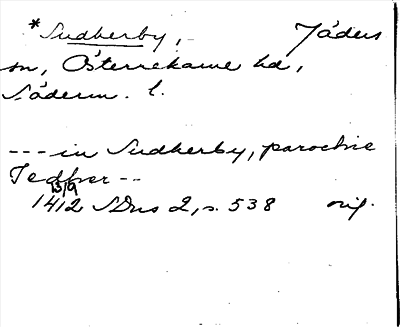 *Sudherby, Jäders
sn, Österrekarne hd,
Söderm. l.
--- in Sudherby, parochie
Jedher --
13/9
1412 SDns 2, s. 538 orig.